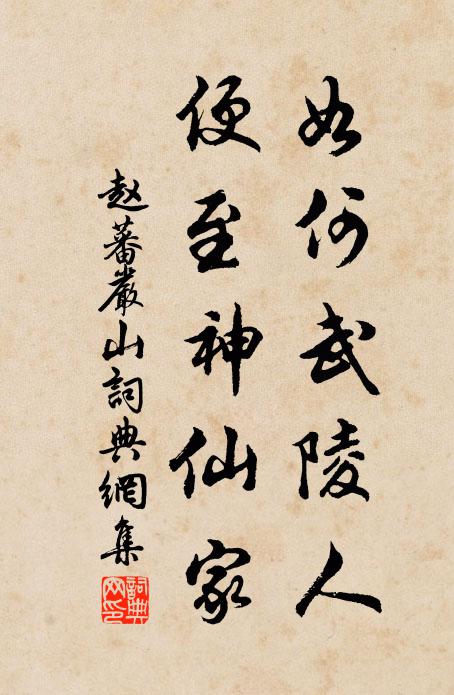 如何武陵人
便至神仙家
赵蕃嚴山詞典網集
詞典網印